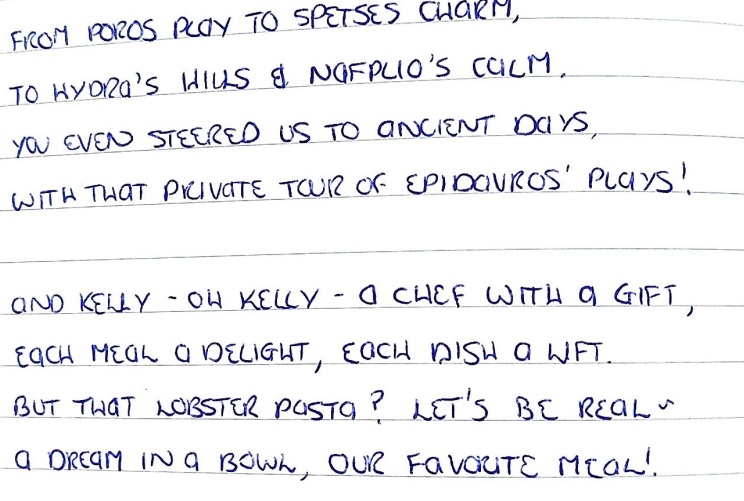 FROM POROS PLAY TO SPETSES CHARM,
TO HYDRA'S HILLS & NAFPLIO'S CALM.
YOU EVEN STEERED US TO ANCIENT DAYS,
WITH THAT PRIVATE TOUR OF EPIDAVROS' PLAYS!
AND KELLY - OH KELLY - A CHEF WITH A GIFT,
EACH MEAL A DELIGHT, EACH DISH A LIFT.
BUT THAT LOBSTER PASTA? LET'S BE REAL ~
A DREAM IN A BOWL, OUR FAVORITE MEAL!